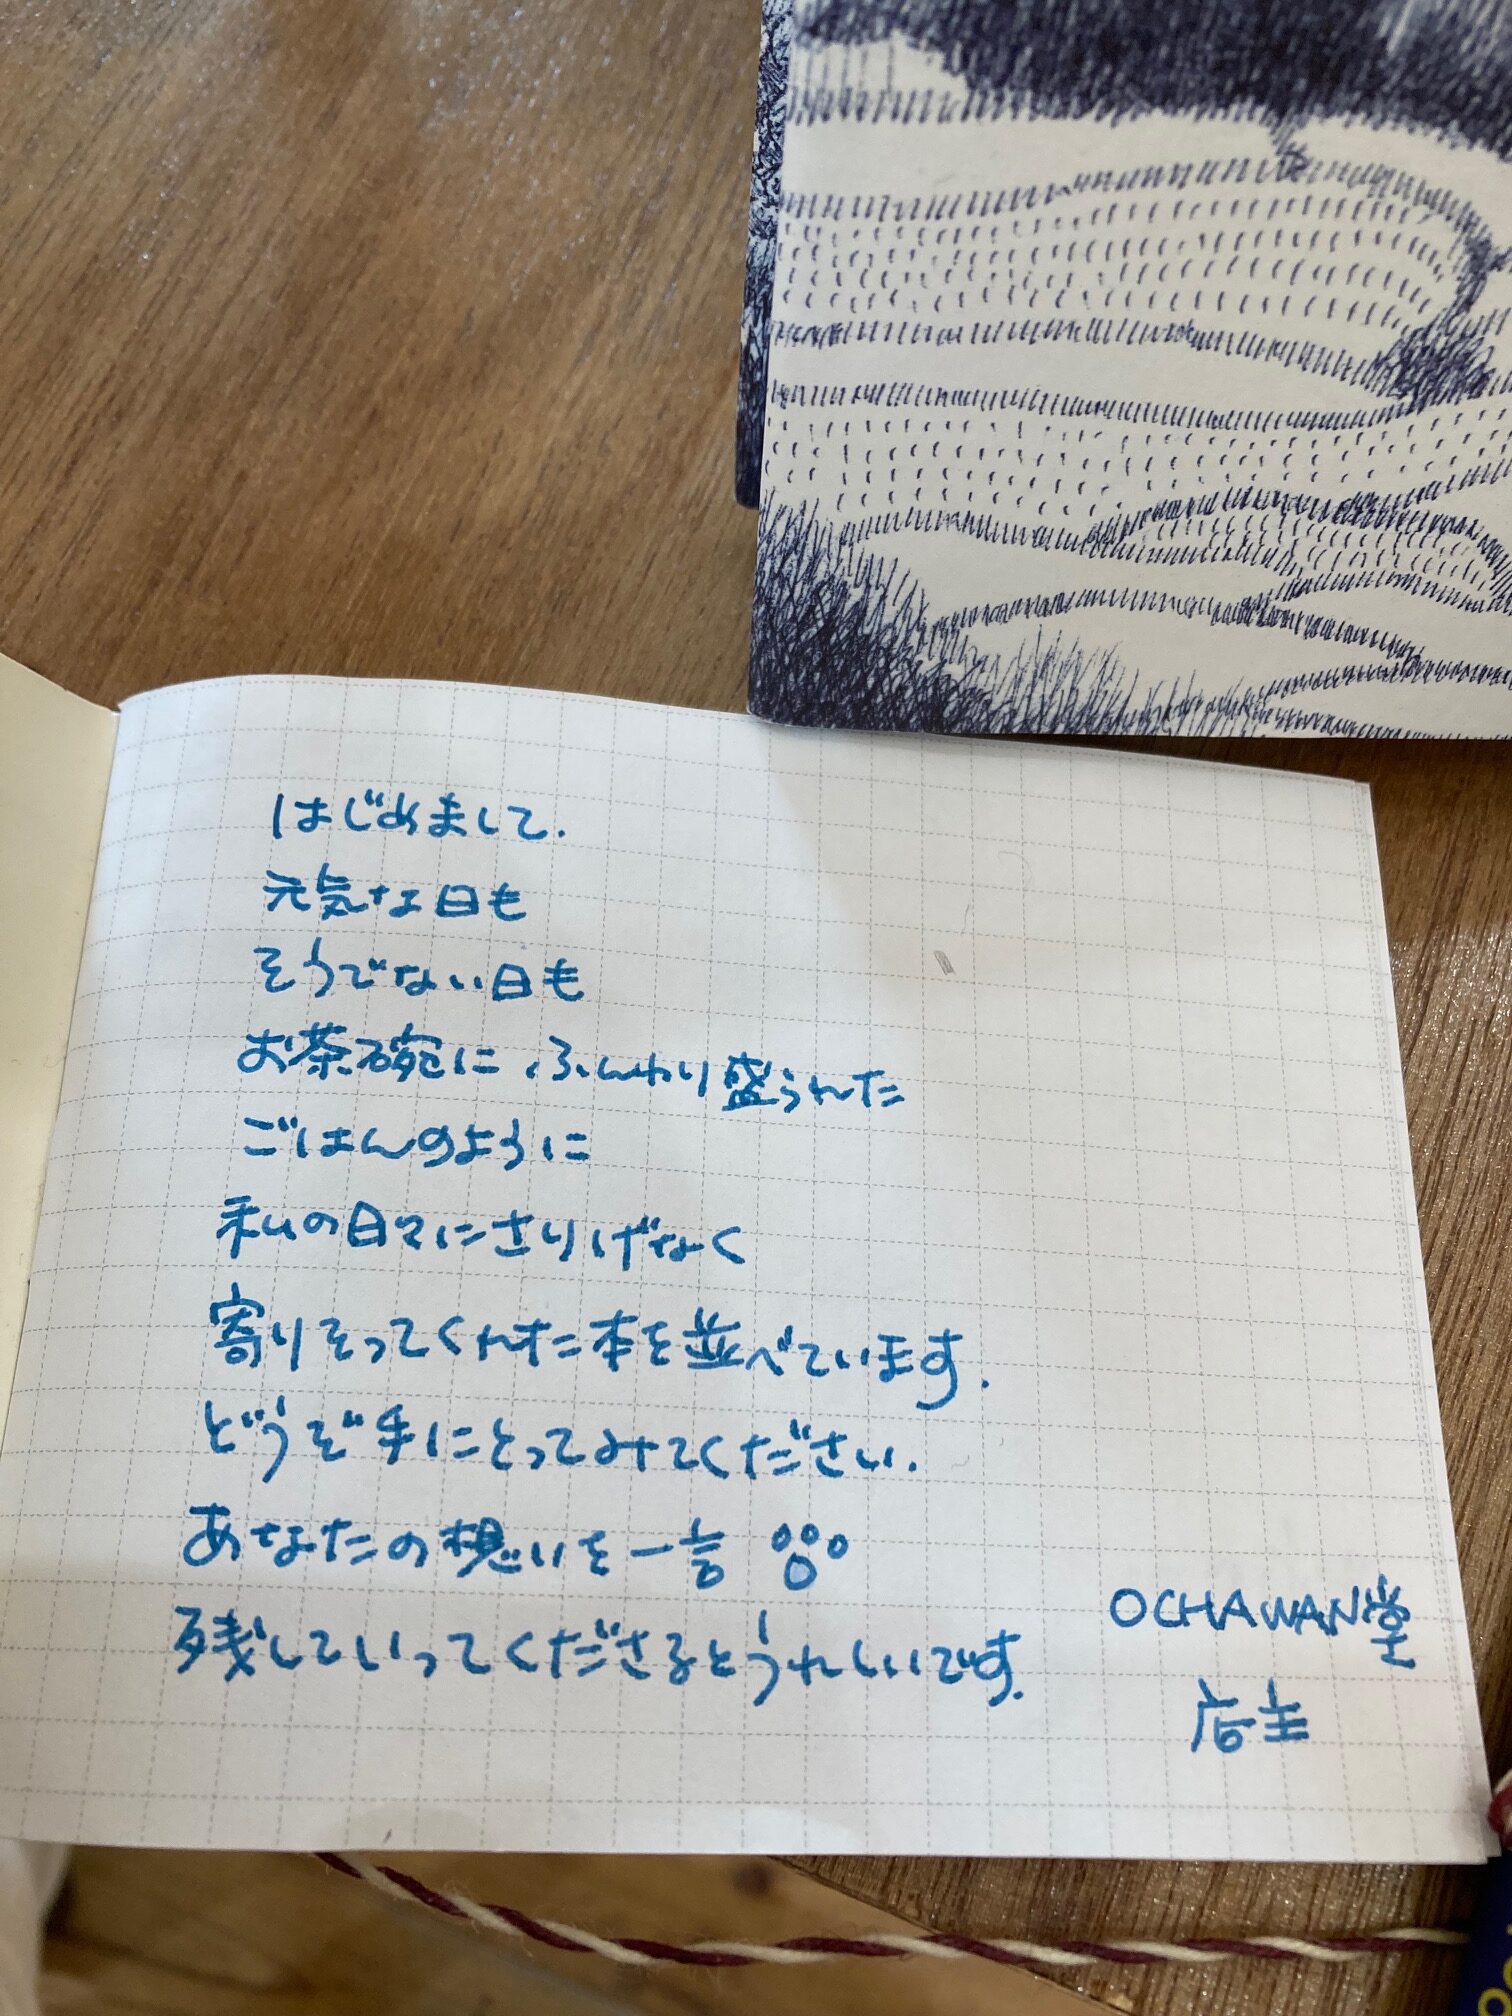 はじめまして.
元気な日も
そうでない日も
お茶碗に ふんわり盛られた
ごはんのように
私の日々にさりげなく
寄りそってくれた本を並べています.
どうぞ手にとってみてください.
あなたの想いを一言
残していってくださるとうれしいです.
OCHAWAN堂
店主